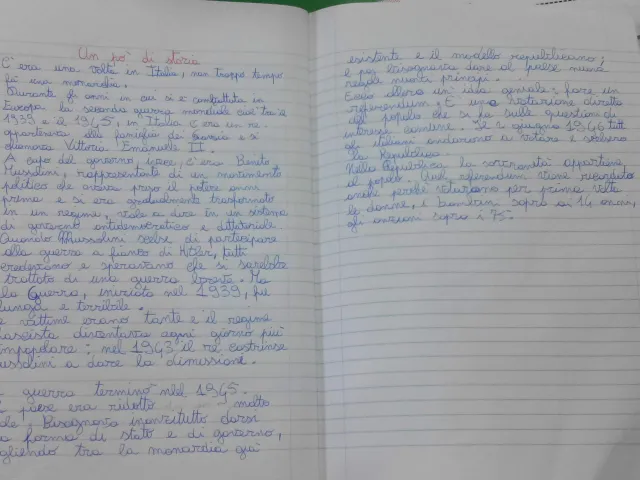 Un pò di storia
C'era una volta in Italia, non troppo tempo
fa una monarchia.
Durante gli anni in cui si è combattuta in
Europa la seconda guerra mondiale cioè tra il
1939 e il 1945, in Italia c'era un re
appartenева alla famiglia dei Savoia e si
chiamava Vittorio Emanuele II.
A capo del governo, invece, c'era Benito
Mussolini, rappresentante di un movimento
politico che aveva preso il potere anni
prima e si era gradualmente trasformato
in un regime, vale a dire in un sistema
di governo antidemocratico e dittatoriale
Quando Mussolini scelse di partecipare
alla guerra a fianco di Hitler, tutti
credevano e speravano che si sarebbe
trattato di una guerra breve. Ma
la guerra, iniziata nel 1939, fu
lunga e terribile.
e vittime erano tante e il regime
fascista diventava ogni giorno più
impopolare: nel 1943 il re costrinse
ussolini a dare la dimissione.
guerra terminò nel 1945.
paese era ridotto molto
Bisognava innanzitutto darsi
a forma di stato e di governo,
gliendo tra la monarchia già
esistente e il modello repubblicano;
e poi bisognava dare al paese nuove
regole nuovi principi.
Ecco allora un'idea geniale: fare un
referendum. È una votazione diretta
del popolo che si fa sulle questioni di
interesse comune. Il 2 giugno 1946 tutti
gli italiani andarono a votare e scelsero
la Repubblica
Nella Repubblica la sovranità appartiene
al popolo. Quel referendum viene ricordato
anche perché votarono per prima volta
le donne, i bambini sopra ai 14 anni,
gli anziani sopra i 75.